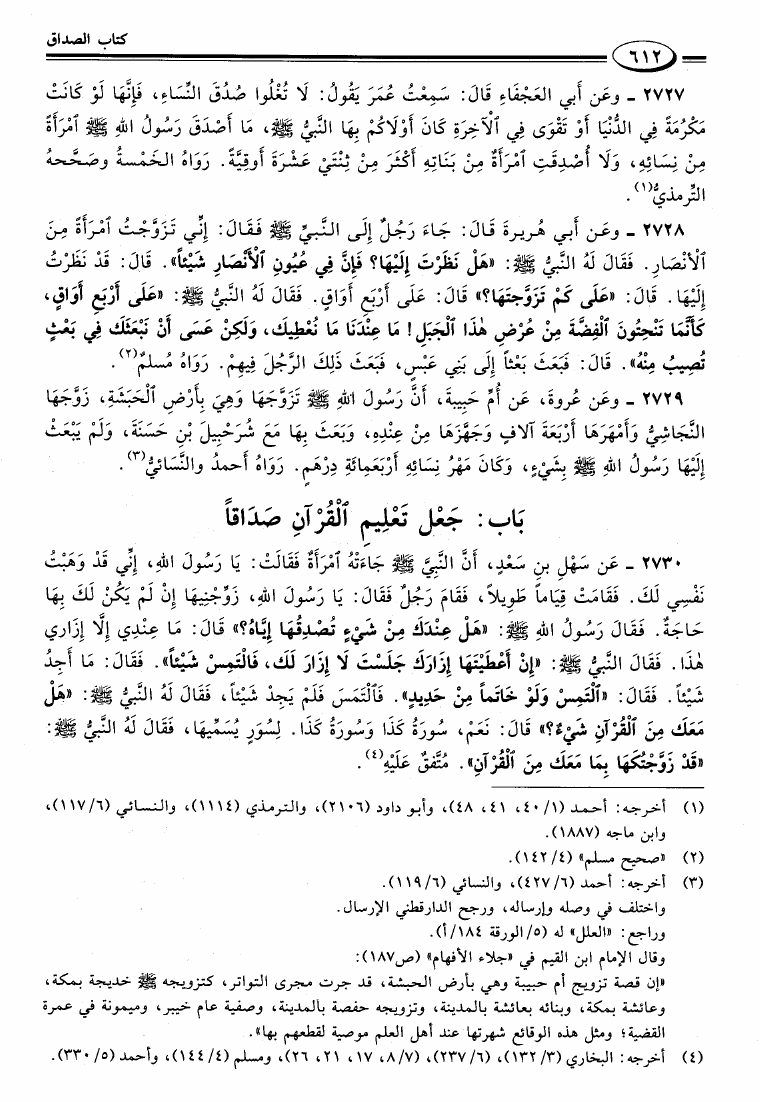 كتاب الصداق
٦١٢
٢٧٢٧ ـ وعَن أَبي العَجْفَاءِ قَالَ: سَمِعْتُ عُمَرَ يَقُولُ: لَا تُغْلُوا صُدُقَ النِّسَاءِ، فَإِنَّهَا لَوْ كَانَتْ
مَكْرُمَةً فِي الدُّنْيَا أَوْ تَقْوَى فِي ٱلْآخِرَةِ كَانَ أَوْلَاكُمْ بِهَا النَّبِيُّ ﷺ، مَا أَصْدَقَ رَسُولُ اللهِ ﷺ ٱمْرَأَةً
مِنْ نِسَائِهِ، وَلَا أُصْدِقَتِ ٱمْرَأَةٌ مِنْ بَنَاتِهِ أَكْثَرَ مِنْ ثِنْتَيْ عَشْرَةَ أُوقِيَّةً. رَوَاهُ الخَمْسةُ وصَحَّحهُ
التِّرمذيُّ(١).
٢٧٢٨ ـ وعَن أَبي هُريرةَ قَالَ: جَاءَ رَجُلٌ إِلَى النَّبيِّ ﷺ فَقَالَ: إِنِّي تَزَوَّجْتُ ٱمْرَأَةً مِنَ
ٱلْأَنْصَارِ. فَقَالَ لَهُ النَّبيُّ ﷺ: «هَلْ نَظَرْتَ إِلَيْهَا؟ فَإِنَّ فِي عُيُونِ ٱلْأَنْصَارِ شَيْئاً». قَالَ: قَدْ نَظَرْتُ
إِلَيْهَا. قَالَ: «عَلَى كَمْ تَزَوَّجْتَهَا؟» قَالَ: عَلَى أَرْبَعِ أَوَاقٍ. فَقَالَ لَهُ النَّبيُّ ﷺ: «عَلَى أَرْبَعِ أَوَاقٍ،
كَأَنَّمَا تَنْحِتُونَ ٱلْفِضَّةَ مِنْ عُرْضِ هٰذَا ٱلْجَبَلِ! مَا عِنْدَنَا مَا نُعْطِيكَ، وَلٰكِنْ عَسَى أَنْ نَبْعَثَكَ فِي بَعْثٍ
تُصِيبُ مِنْهُ». قَالَ: فَبَعَثَ بَعْثاً إِلَى بَنِي عَبْسٍ، فَبَعَثَ ذَلِكَ الرَّجُلَ فِيهِمْ. رَوَاهُ مُسلمٌ(٢).
٢٧٢٩ ـ وعَن عُروةَ، عَن أُمِّ حَبِيبةَ، أَنَّ رَسُولَ اللهِ ﷺ تَزَوَّجَهَا وَهِيَ بِأَرْضِ ٱلْحَبَشَةِ، زَوَّجَهَا
النَّجَاشِيُّ وَأَمْهَرَهَا أَرْبَعَةَ آلَافٍ وَجَهَّزَهَا مِنْ عِنْدِهِ، وَبَعَثَ بِهَا مَعَ شُرَحْبِيلَ بْنِ حَسَنَةَ، وَلَمْ يَبْعَثْ
إِلَيْهَا رَسُولُ اللهِ ﷺ بِشَيْءٍ، وَكَانَ مَهْرُ نِسَائِهِ أَرْبَعَمِائَةِ دِرْهَمٍ. رَوَاهُ أَحمدُ والنَّسائيُّ(٣).
بَاب: جَعْل تَعْلِيمِ ٱلْقُرْآنِ صَدَاقاً
٢٧٣٠ ـ عَن سَهْلِ بنِ سَعْدٍ، أَنَّ النَّبيَّ ﷺ جَاءَتْهُ ٱمْرَأَةٌ فَقَالَتْ: يَا رَسُولَ اللهِ، إِنِّي قَدْ وَهَبْتُ
نَفْسِي لَكَ. فَقَامَتْ قِيَاماً طَوِيلاً، فَقَامَ رَجُلٌ فَقَالَ: يَا رَسُولَ اللهِ، زَوِّجْنِيهَا إِنْ لَمْ يَكُنْ لَكَ بِهَا
حَاجَةٌ. فَقَالَ رَسُولُ اللهِ ﷺ: «هَلْ عِنْدَكَ مِنْ شَيْءٍ تُصْدِقُهَا إِيَّاهُ؟» قَالَ: مَا عِنْدِي إِلَّا إِزَارِي
هٰذَا. فَقَالَ النَّبيُّ ﷺ: «إِنْ أَعْطَيْتَهَا إِزَارَكَ جَلَسْتَ لَا إِزَارَ لَكَ، فَالْتَمِسْ شَيْئاً». فَقَالَ: مَا أَجِدُ
شَيْئاً. فَقَالَ: «ٱلْتَمِسْ وَلَوْ خَاتَماً مِنْ حَدِيدٍ». فَٱلْتَمَسَ فَلَمْ يَجِدْ شَيْئاً، فَقَالَ لَهُ النَّبيُّ ﷺ: «هَلْ
مَعَكَ مِنَ ٱلْقُرْآنِ شَيْءٌ؟» قَالَ: نَعَمْ، سُورَةُ كَذَا وَسُورَةُ كَذَا. لِسُوَرٍ يُسَمِّيهَا، فَقَالَ لَهُ النَّبيُّ ﷺ:
«قَدْ زَوَّجْتُكَهَا بِمَا مَعَكَ مِنَ ٱلْقُرْآنِ». مُتَّفقٌ عَلَيْهِ(٤).
(١) أخرجه: أحمد (٤٠/١، ٤١، ٤٨)، وأبو داود (٢١٠٦)، والترمذي (١١١٤)، والنسائي (١١٧/٦)،
وابن ماجه (١٨٨٧).
(٢) «صحيح مسلم» (١٤٢/٤).
(٣) أخرجه: أحمد (٤٢٧/٦)، والنسائي (١١٩/٦).
واختلف في وصله وإرساله، ورجح الدارقطني الإرسال.
وراجع: «العلل» له (٥/الورقة ١٨٤/أ).
وقال الإمام ابن القيم في «جلاء الأفهام» (ص١٨٧):
«إن قصة تزويج أم حبيبة وهي بأرض الحبشة، قد جرت مجرى التواتر، كتزويجه ﷺ خديجة بمكة،
وعائشة بمكة، وبنائه بعائشة بالمدينة، وتزويجه حفصة بالمدينة، وصفية عام خيبر، وميمونة في عمرة
القضية؛ ومثل هذه الوقائع شهرتها عند أهل العلم موصية لقطعهم بها».
(٤) أخرجه: البخاري (١٣٢/٣)، (٢٣٧/٦)، (٨/٧، ١٧، ٢١، ٢٦)، ومسلم (١٤٤/٤)، وأحمد (٣٣٠/٥).